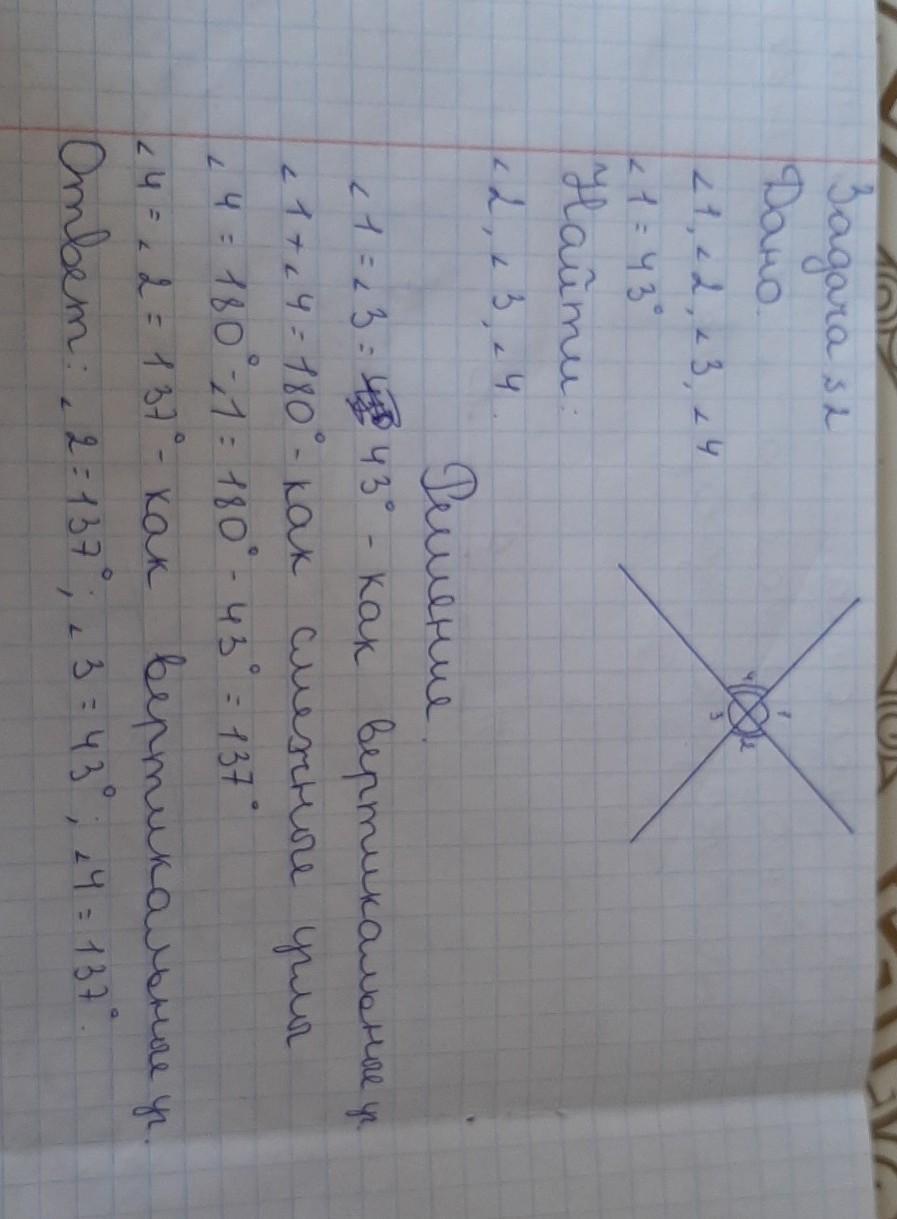 Задача №2
Дано.
∠1, ∠2, ∠3, ∠4
∠1 = 43°
Найти:
∠2, ∠3, ∠4.
1
2
3
4
Решение.
∠1 = ∠3 = 43° - как вертикальные уг
∠1 + ∠4 = 180° - как смежные углы
∠4 = 180° - ∠1 = 180° - 43° = 137°
∠4 = ∠2 = 137° - как вертикальные уг.
Ответ: ∠2 = 137°; ∠3 = 43°; ∠4 = 137°.